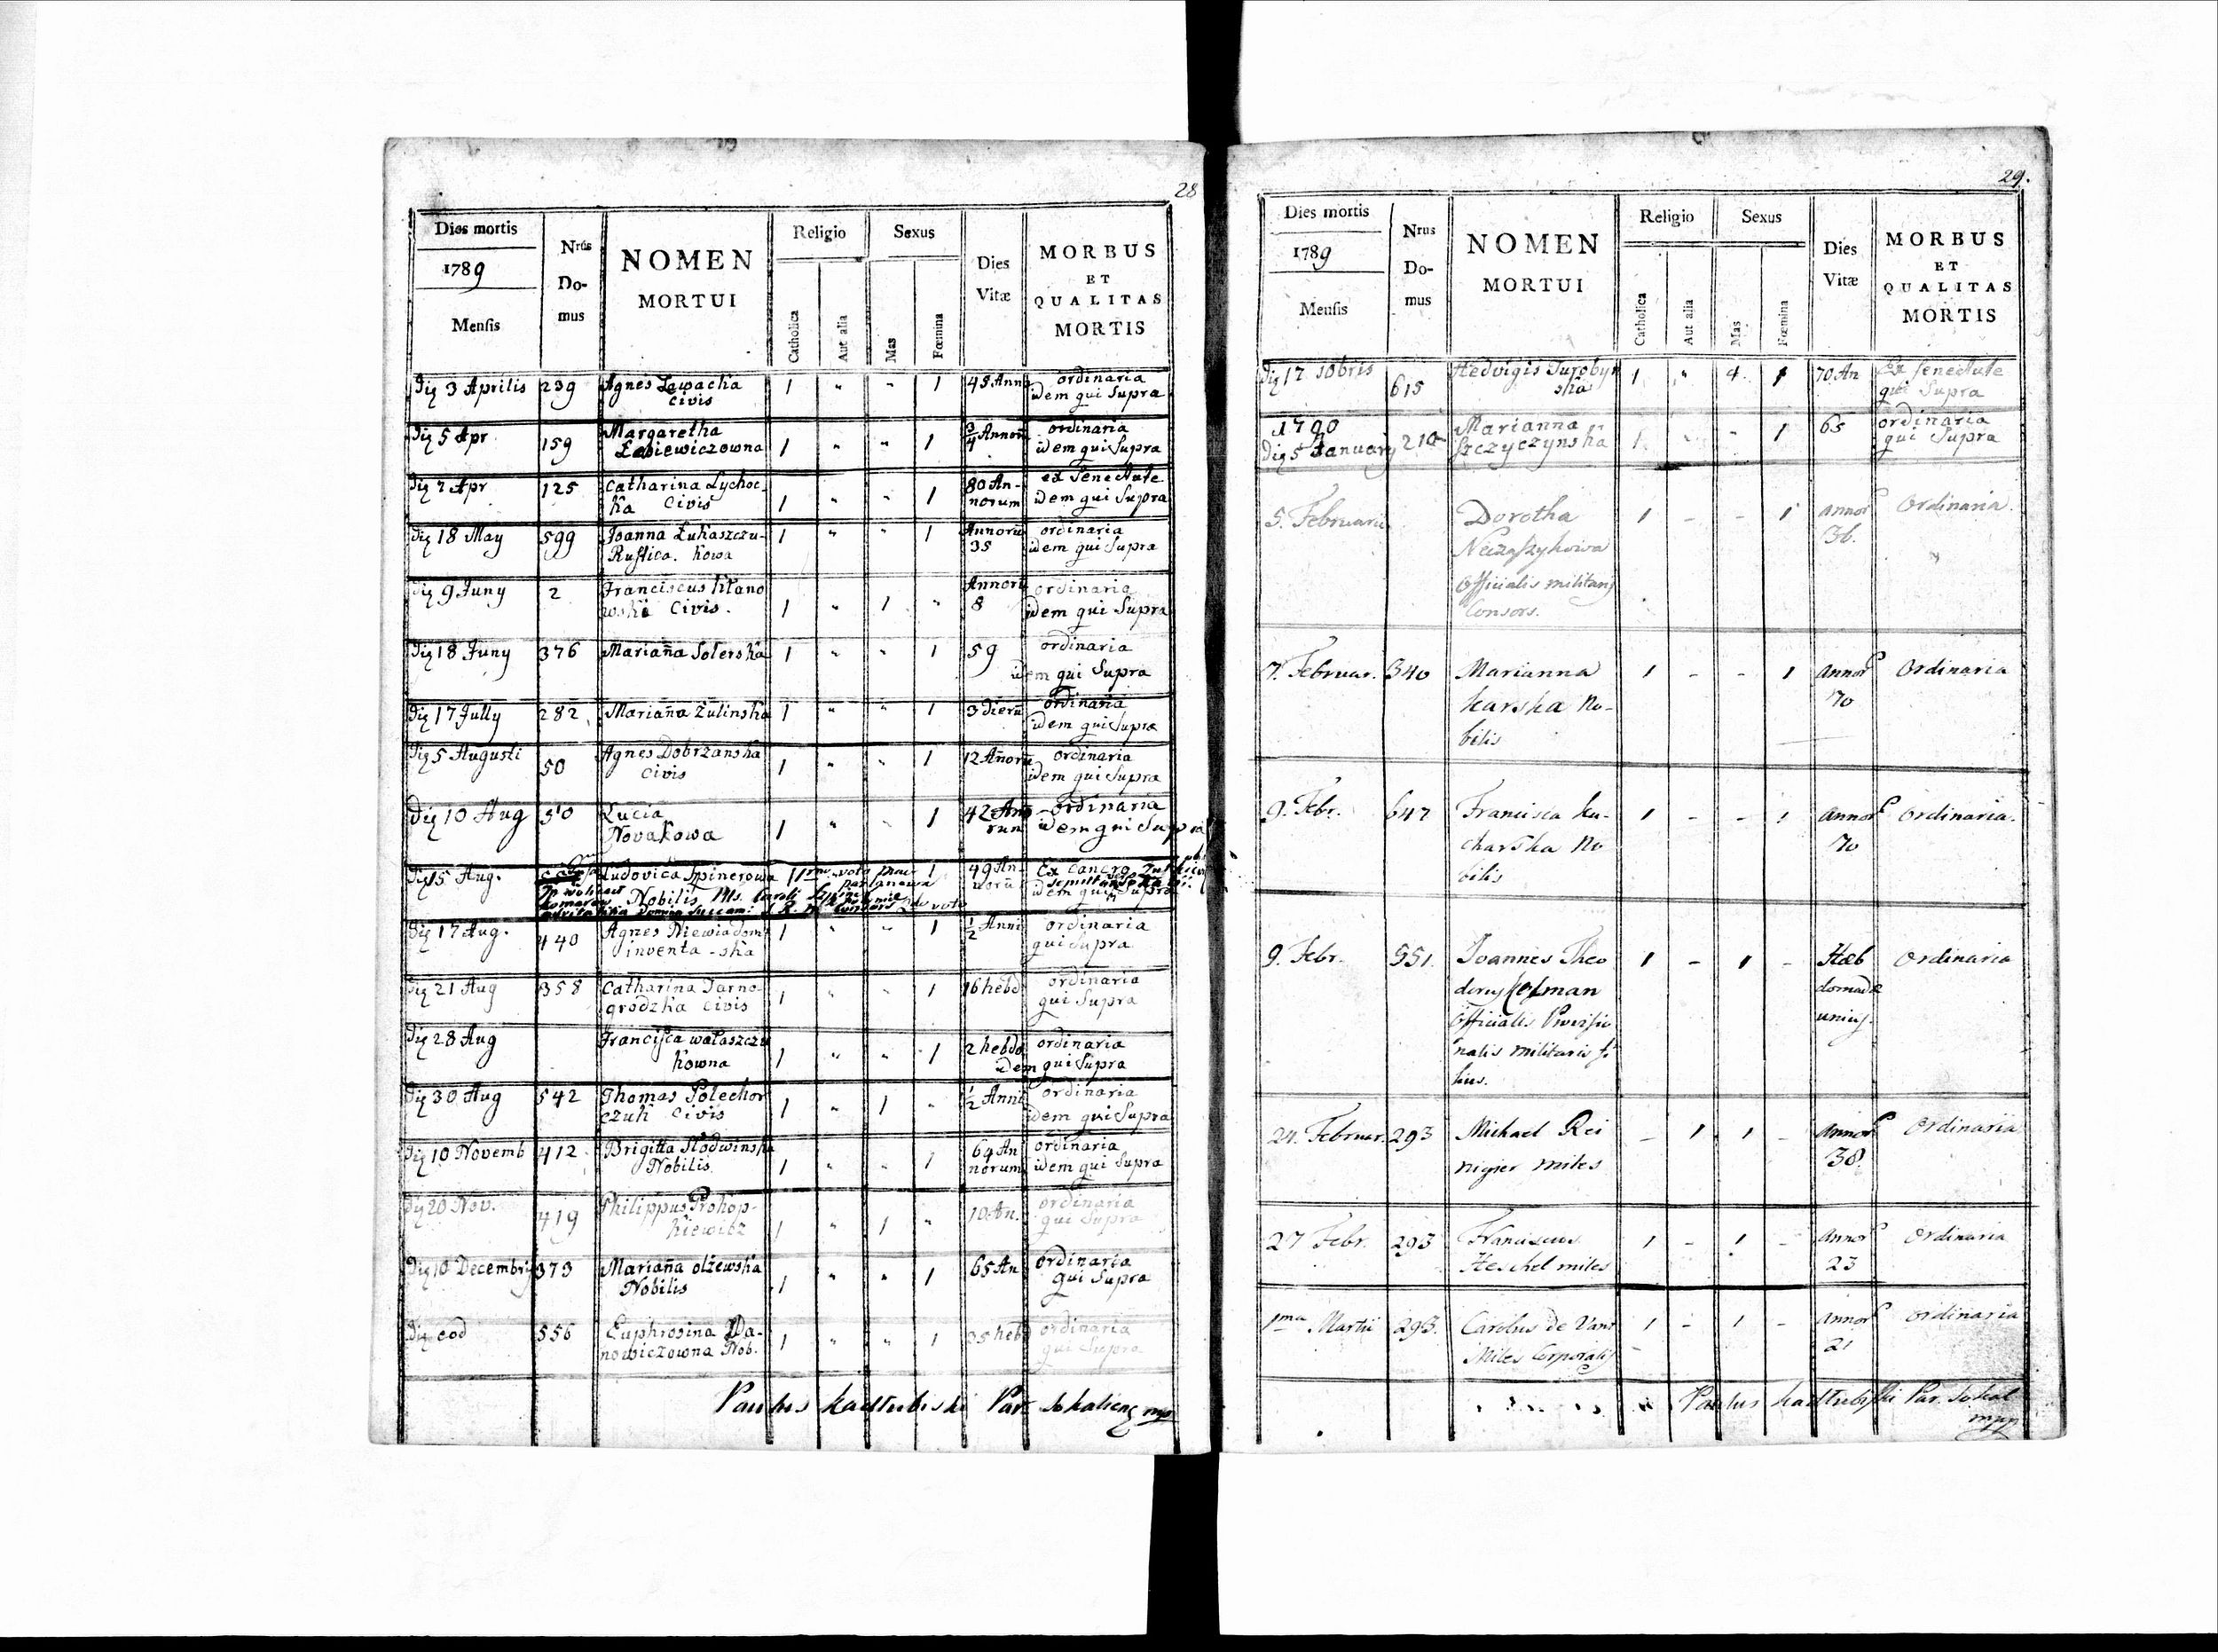 28
Dies mortis
1789
Mensis
Nrus
Do-
mus
NOMEN
MORTUI
Religio
Catholica
Aut alia
Sexus
Mas
Fœmina
Dies
Vitæ
MORBUS
ET
QUALITAS
MORTIS
Die 3 Aprilis 239 Agnes Lewacka 1 " " 1 45 Anno ordinaria
Civis idem qui Supra
Die 5 Apr 159 Margaretha 1 " " 1 3/4 Annoru ordinaria
idem qui Supra
Die 7 Apr 125 Catharina Lychoc- 1 " " 1 80 An- ex Senectute
ka Civis norum idem qui Supra
Die 18 May 599 Joanna Łukaszczu- 1 " " 1 Annoru ordinaria
Rustica. kowa 35 idem qui Supra
Die 9 Juny 2 Franciscus 1 " 1 " Annoru ordinaria
wski Civis. 8 idem qui Supra
Die 18 Juny 376 Marian̄a Solerska 1 " " 1 59 ordinaria
idem qui Supra
Die 17 July 282 Marian̄a Zulinska 1 " " 1 3 dierū ordinaria
idem qui Supra
Die 5 Augusti 50 Agnes Dobrzanska 1 " " 1 12 An̄orū ordinaria
Civis idem qui Supra
Die 10 Aug 50 Lucia 1 " " 1 42 Ano ordinaria
Novakowa rum idem qui Supra
Die 15 Aug. Ludovica Spinerowa voto 1 49 An- Ex Cancro
Nobilis norū idem qui Supra
voto
Die 17 Aug. 440 Agnes Niewiadom- 1 " " 1 1/2 Anni ordinaria
inventa -ska qui Supra
Die 21 Aug 358 Catharina Tarno- 1 " " 1 16 hebd ordinaria
grodzka Civis qui Supra
Die 28 Aug Francisca wałaszczu 1 " " 1 2 hebdo ordinaria
kowna idem qui Supra
Die 30 Aug 542 Thomas Polechon 1 " 1 " 1/2 Anni ordinaria
czuk Civis idem qui Supra
Die 10 Novemb 412 Brigitta Słodwinska 1 " " 1 64 An ordinaria
Nobilis norum idem qui Supra
Die 20 Nov. 419 Philippus Prokop- 1 " 1 " 10 An. ordinaria
kiewicz qui Supra
Die 10 Decembris 373 Marian̄a olżewska 1 " " 1 65 An ordinaria
Nobilis qui Supra
Die eod 556 Euphrosina Da- 1 " " 1 35 hebd ordinaria
nowiczowna Nob. qui Supra
Paulus kadłubiski Par. Sokaliens mp
29.
Dies mortis
1789
Mensis
Nrus
Do-
mus
NOMEN
MORTUI
Religio
Catholica
Aut alia
Sexus
Mas
Fœmina
Dies
Vitæ
MORBUS
ET
QUALITAS
MORTIS
Die 17 10bris 615 Hedvigis Turobyn 1 " 1 70 An Ex senectute
ska qui Supra
1790 Marianna 65 ordinaria
Die 5 January 210 Szczyczynska 1 - - 1 qui Supra
5. Februarii Dorotha 1 - - 1 annor Ordinaria.
36.
officialis militaris
Consors.
7. Februar. 340 Marianna 1 - - 1 Annor Ordinaria
karska No- 70
bilis
9. Febr. 647 Francisca ku- 1 - - 1 annor Ordinaria.
charska No 70
bilis
9. Febr. 551. Joannes Theo 1 - 1 - Heb Ordinaria
dorus Hofman domadæ
Officialis Provisio unius.
nalis militaris fi
lius.
24. Februar. 293 Michael Rei - 1 1 - Annor Ordinaria
nigier miles 38.
27 Febr. 293 Franciscus 1 - 1 - Annor Ordinaria
Heschel miles 23
1ma Martii 293. Carolus de Vant 1 - 1 - Annor Ordinaria
Miles Corporalis 21
Paulus kadłubiski Par. Sokal
mpp